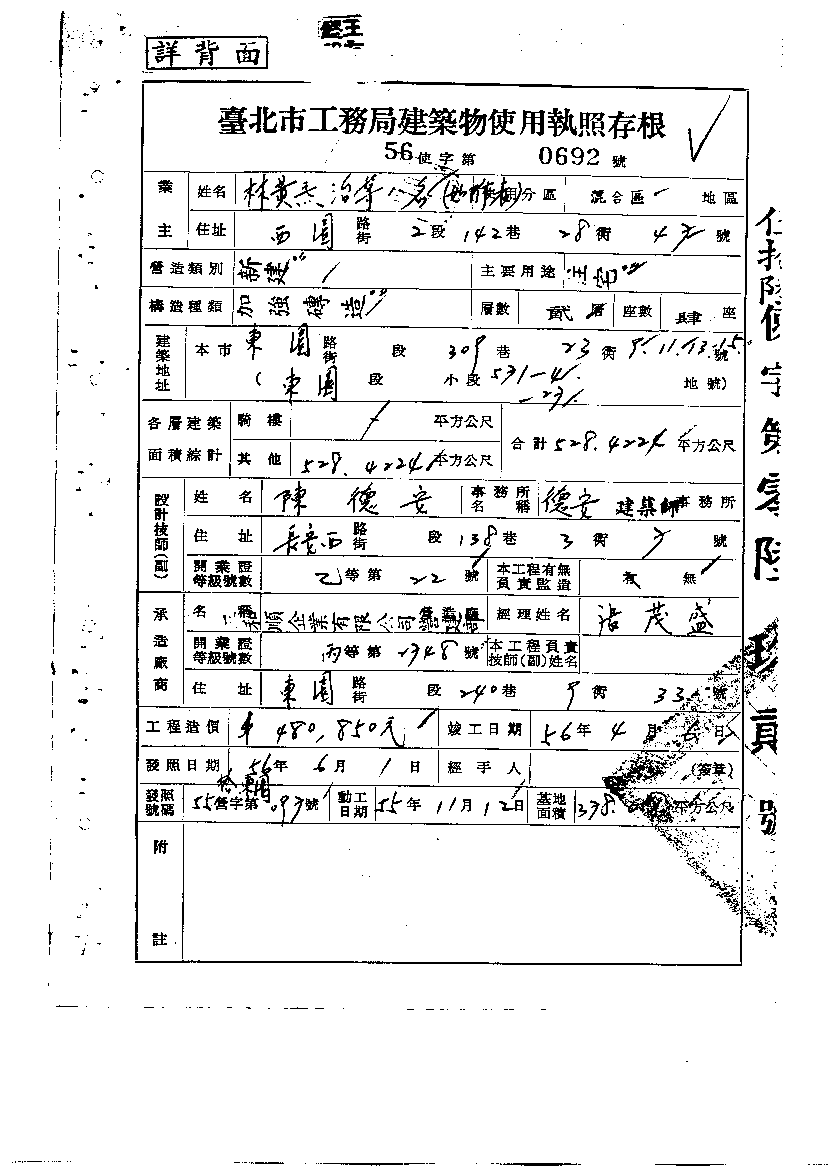 詳背面
臺北市工務局建築物使用執照存根
56使字第 0692 號
業主 姓名 林黃 治等八名 使用分區 混合區 地區
住址 西園 路街 2段 142巷 28衖 4 號
營造類別 新建 主要用途 住宅
構造種類 加強磚造 層數 貳層 座數 肆座
建築地址 本市 東園 路街 段 309巷 23衖 9.11.13.15.號
(東園 段 小段 531-4 地號)
-231
各層建築面積綜計 騎樓 平方公尺 合計 528.4224 平方公尺
其他 528.4224 平方公尺
設計技師(副) 姓名 陳德安 事務所名稱 德安 建築師事務所
住址 長安西 路街 段 138巷 3衖 號
開業證等級號數 乙等第 22 號 本工程有無負責監造 有 無
承造廠商 名稱 三和順企業有限公司營造部 營造廠 經理姓名 張茂盛
開業證等級號數 丙等第 1348號 本工程負責技師(副)姓名
住址 東園 路街 段 240巷 9衖 33 號
工程造價 480,850元 竣工日期 56年 4月 6日
發照日期 56年 6月 1日 經手人 (簽章)
發照號碼 55營字第 093號 動工日期 55年 11月 12日 基地面積 338. 平方公尺
附註
伍拾陸使字第零陸玖貳號